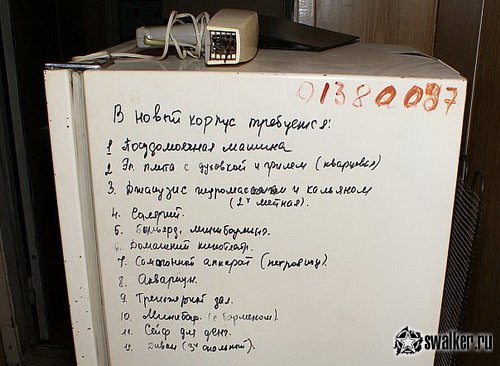 01380087
В новый корпус требуется:
1 Посудомоечная машина
2 Эл. плита с духовкой и грилем (кварцевая)
3. Джакузи с гидромассажем и кальяном
(2х местная).
4. Солярий.
5. Бильярд,
6. Домашний кинотеатр.
7. Самогонный аппарат (
8. Аквариум.
9. Тренажерный зал.
10. Минибар. (с барменом).
11. Сейф для денег.
12. Диван (3х спальный).
swalker.ru